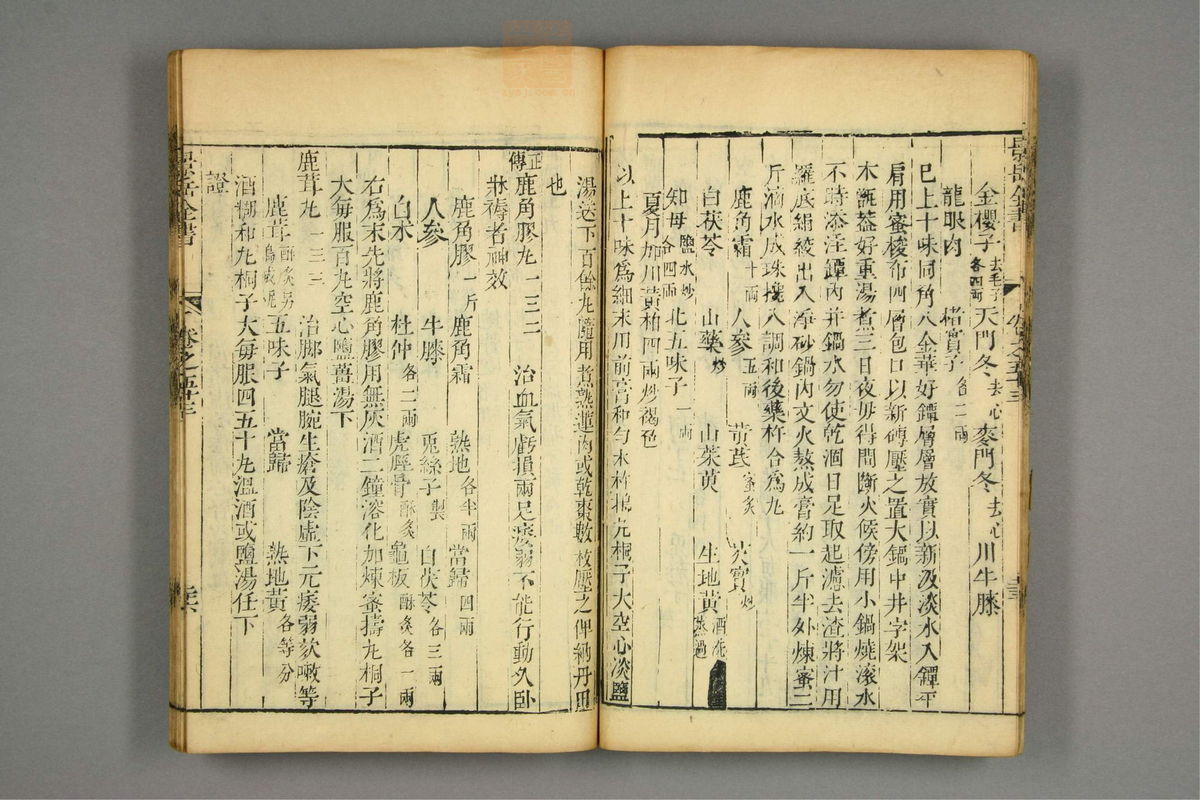 景岳全書
卷之五十三
金櫻子去毛子各四兩 天門冬去心 麥門冬去心 川牛膝
龍眼肉 楮實子各二兩
已上十味同角入金華好罈層層放實以新汲淡水入罈平
肩用蜜梭布四層包口以新磚壓之置大鍋中井字架
木甑蓋好重湯煮三日夜毋得間斷火候傍用小鍋燒滾水
不時添注罈內并鍋水勿使乾涸日足取起濾去渣將汁用
羅底絹絞出入淨砂鍋內文火熬成膏約一斤半外煉蜜二
斤滴水成珠攙入調和後藥杵合為丸
鹿角霜十兩 人參五兩 黃芪蜜炙 芡實炒
白茯苓 山藥炒 山茱萸 生地黃酒洗蒸過
知母鹽水炒各四兩 北五味子一兩
夏月加川黃柏四兩炒褐色
以上十味為細末用前膏和勻木杵搗丸桐子大空心淡鹽
湯送下百餘丸隨用煮熟蓮肉或乾棗數枚壓之俾納丹田
也
正傳鹿角膠丸一三二 治血氣虧損兩足痿弱不能行動久臥
牀褥者神效
鹿角膠一斤 鹿角霜 熟地各半兩 當歸四兩
人參 牛膝 兎絲子製 白茯苓各三兩
白朮 杜仲各二兩 虎脛骨酥炙 龜板酥炙各一兩
右為末先將鹿角膠用無灰酒二鐘溶化加煉蜜擣丸桐子
大每服百丸空心鹽薑湯下
鹿茸丸一三三 治脚氣腿腕生瘡及陰虛下元痿弱欬嗽等
證
鹿茸酥炙另搗成泥 五味子 當歸 熟地黃各等分
酒糊和丸桐子大每服四五十丸溫酒或鹽湯任下
景岳全書
卷之五十三